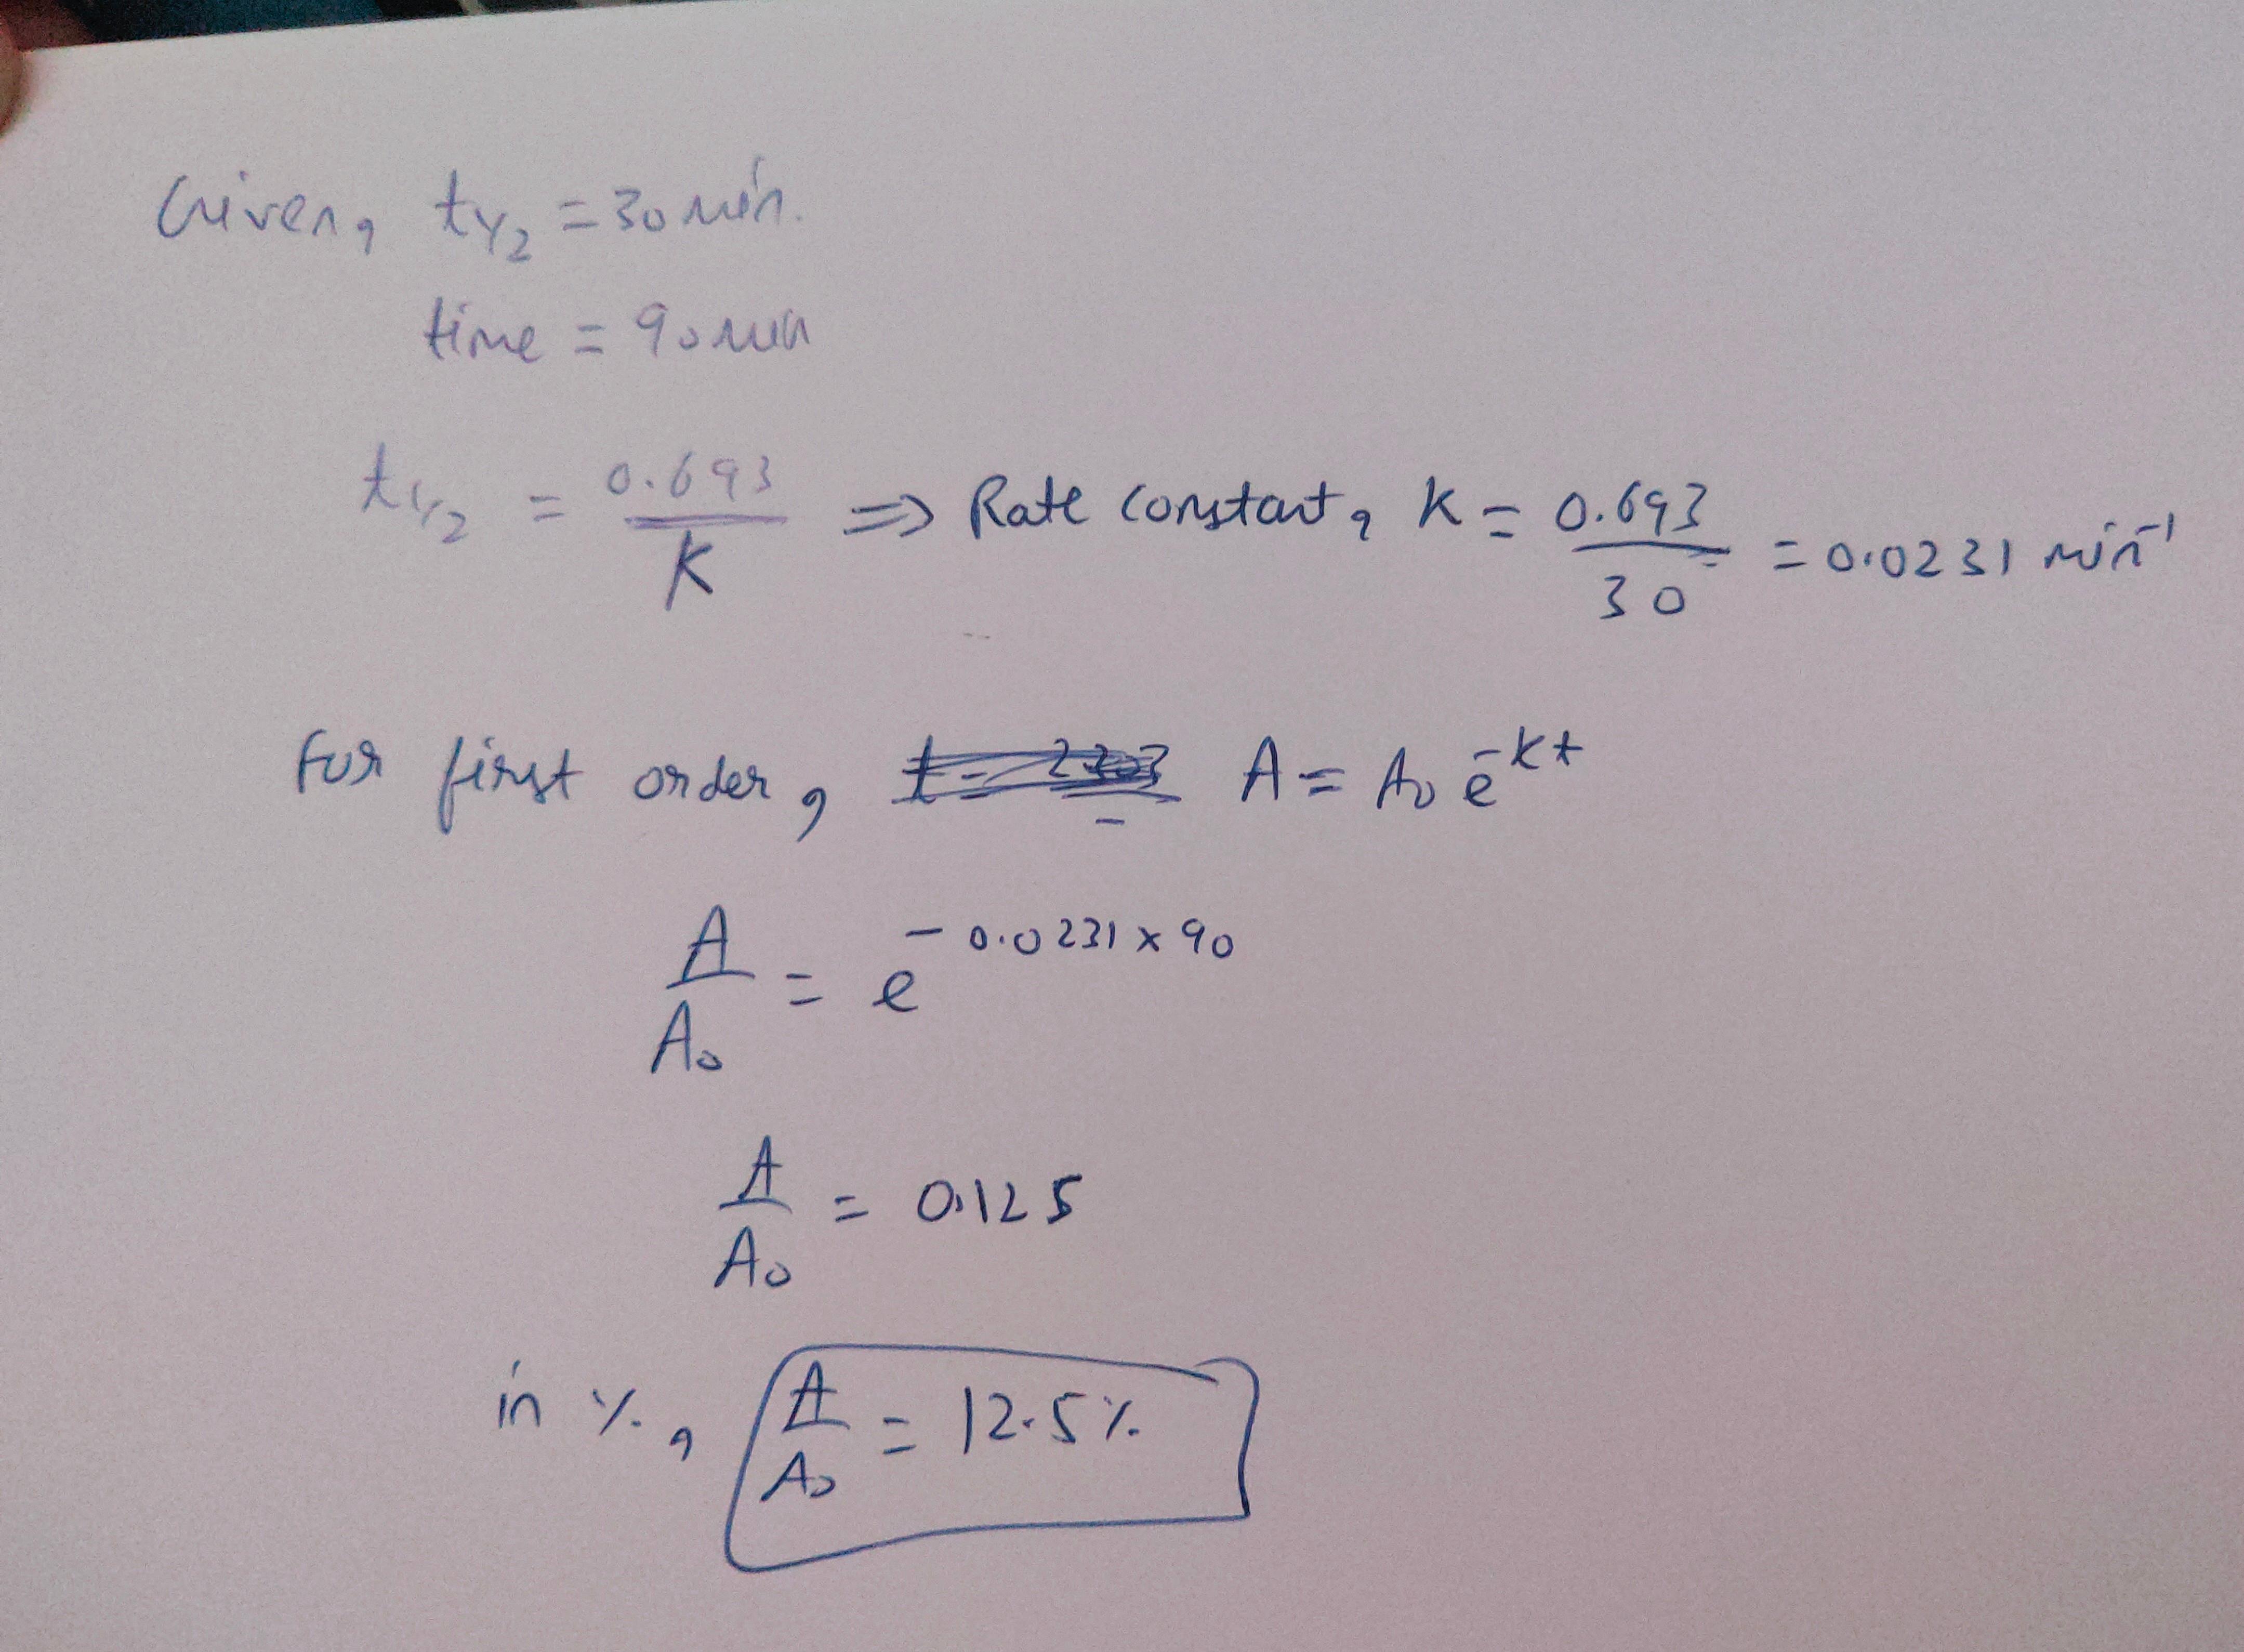 Given, t1/2 = 30 min.
time = 90 min
t1/2 = 0.693/K ⇒ Rate constant, K = 0.693/30 = 0.0231 min⁻¹
For first order, A = A₀ e⁻ᴷᵗ
A/A₀ = e^(-0.0231 × 90)
A/A₀ = 0.125
in %, A/A₀ = 12.5%